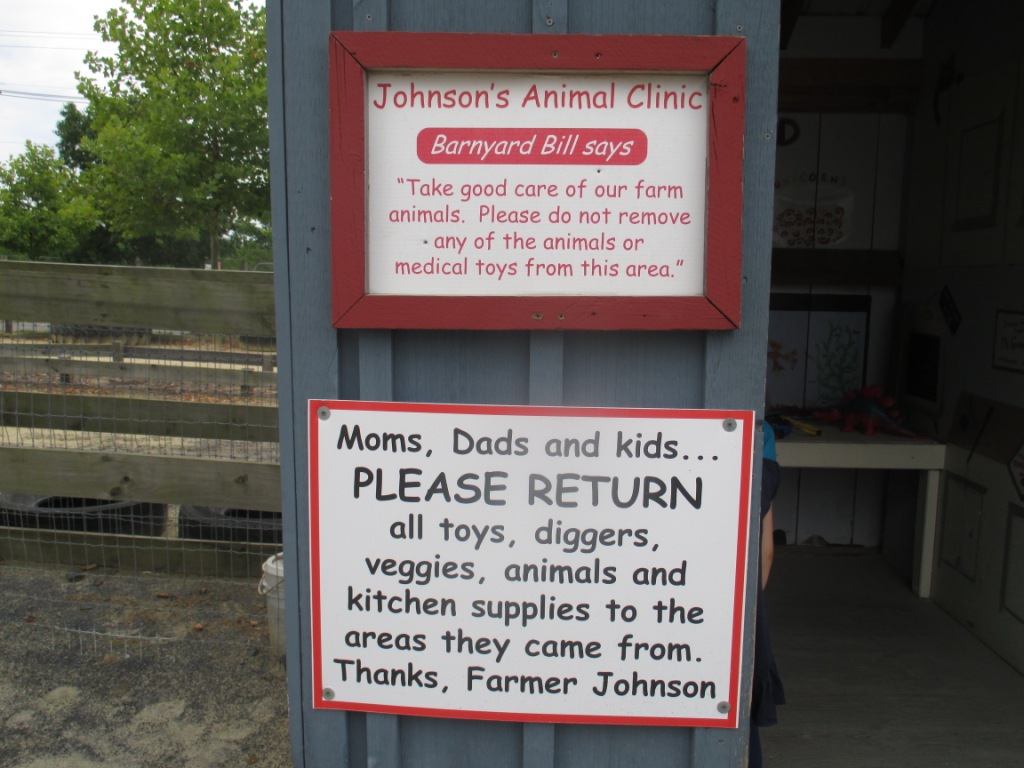 Johnson's Animal Clinic
Barnyard Bill says
"Take good care of our farm
animals. Please do not remove
any of the animals or
medical toys from this area."
Moms, Dads and kids...
PLEASE RETURN
all toys, diggers,
veggies, animals and
kitchen supplies to the
areas they came from.
Thanks, Farmer Johnson